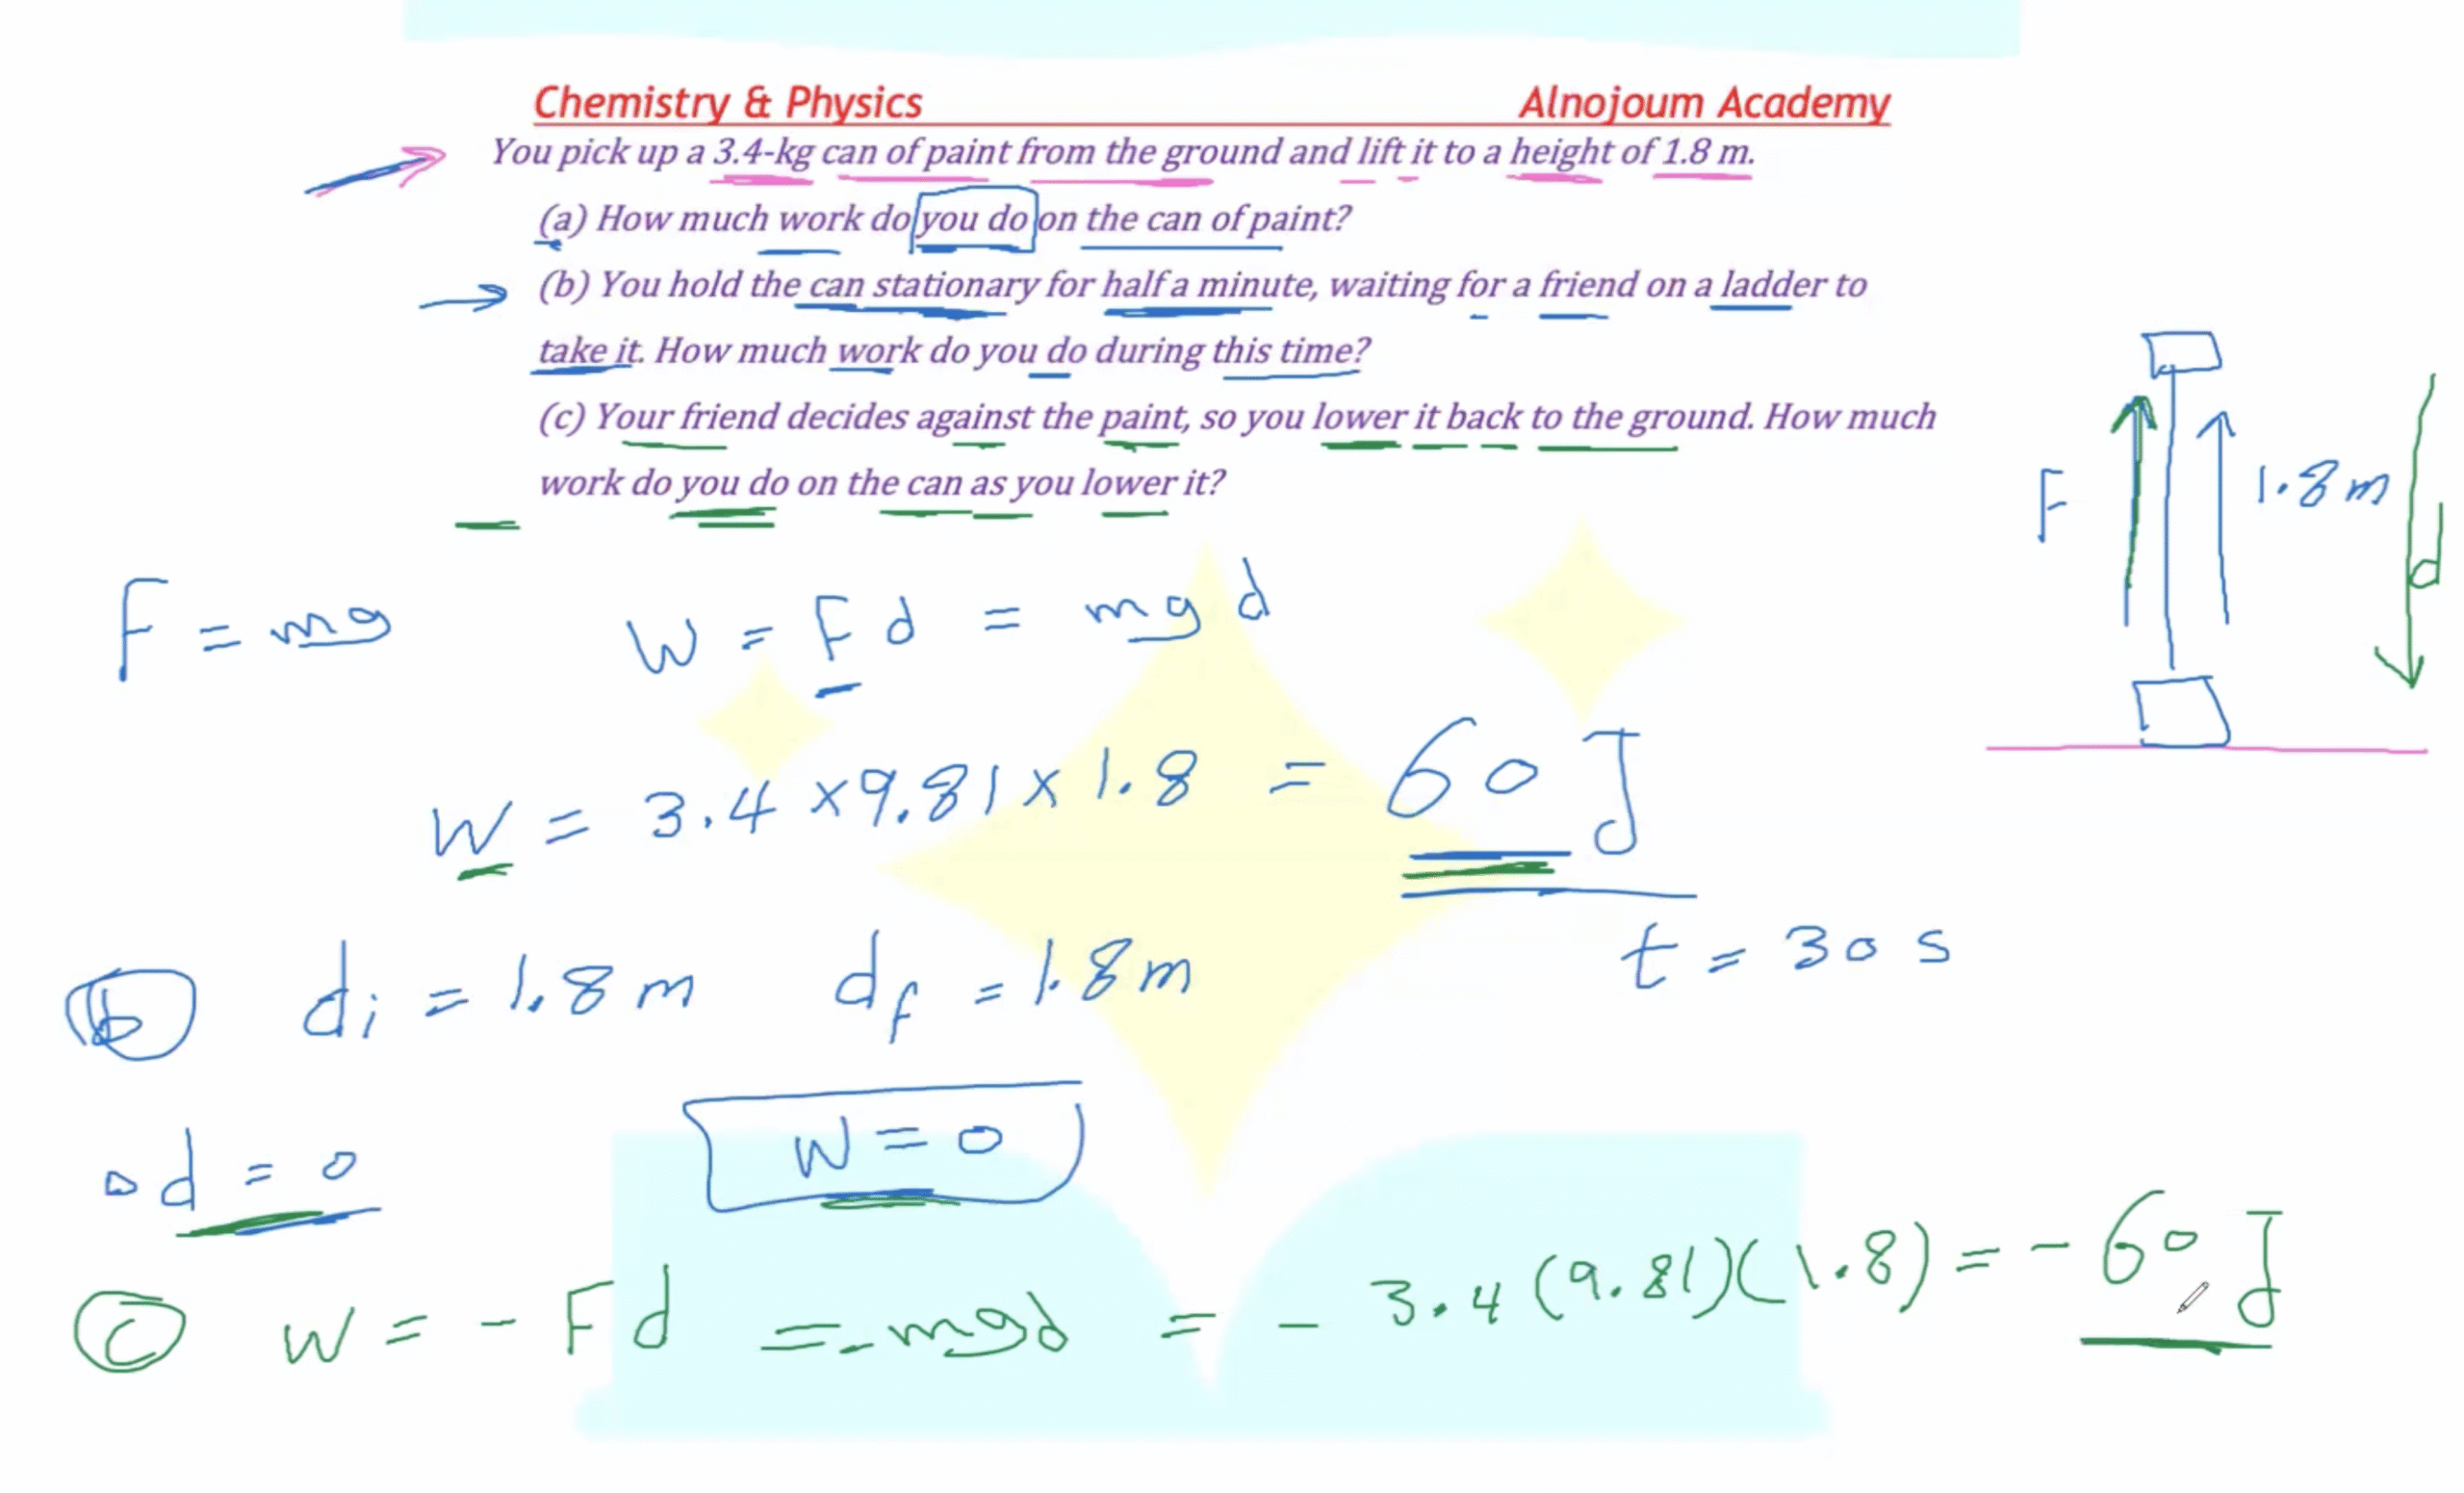 Chemistry & Physics Alnojoum Academy
You pick up a 3.4-kg can of paint from the ground and lift it to a height of 1.8 m.
(a) How much work do you do on the can of paint?
(b) You hold the can stationary for half a minute, waiting for a friend on a ladder to
take it. How much work do you do during this time?
(c) Your friend decides against the paint, so you lower it back to the ground. How much
work do you do on the can as you lower it?
F 1.8 m d
F = mg W = Fd = mgd
W = 3.4 × 9.81 × 1.8 = 60 J
b di = 1.8 m df = 1.8 m t = 30 s
Δd = 0 W = 0
c W = - Fd = - mgd = - 3.4 (9.81)(1.8) = - 60 J